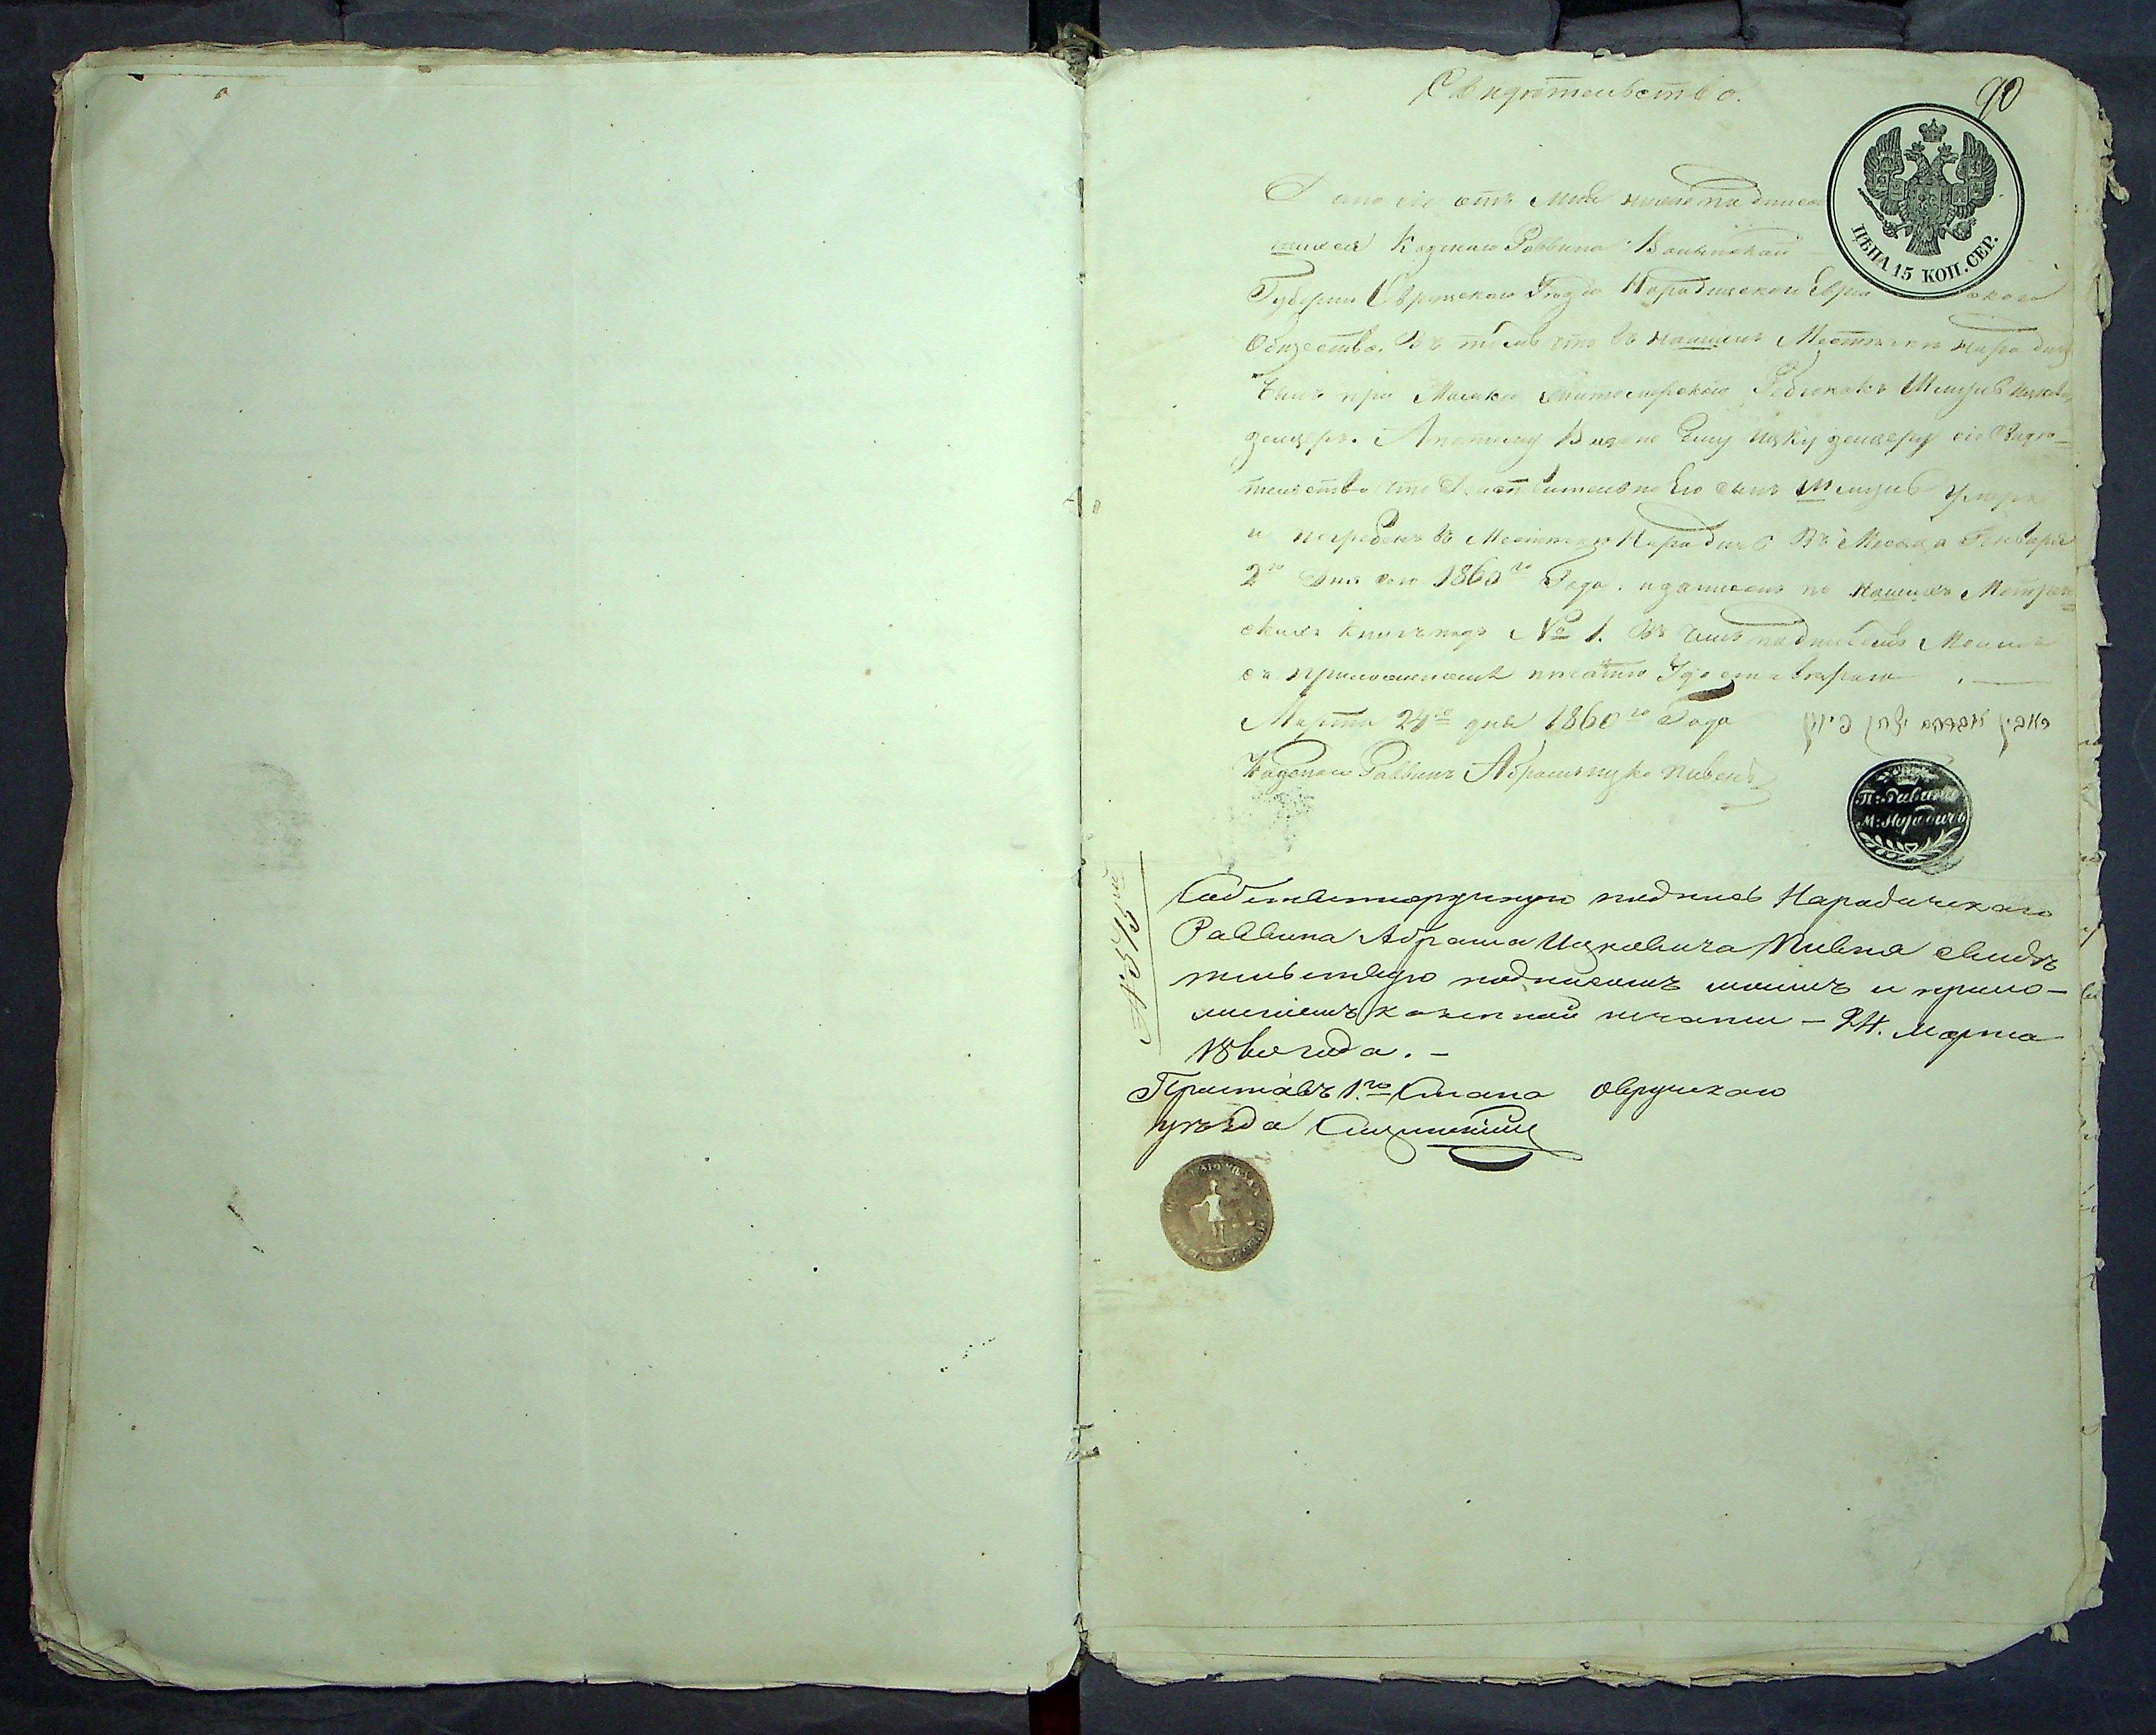 Свидѣтельство.
90
ЦѢНА 15 КОП. СЕР.
Дано сіе отъ мне нижеподписав
шихся Казенаго Раввина Волынской
Губерни Овручскаго Уезда Народицскаго Евре скаго
Общества. Въ томъ что въ нашемъ Местечкѣ народич
былъ при житомерскаго Шмуль ицков
зейцеръ. А потому Выдано Ему ицку зейцеру сіе Свидѣ-
тельство что Действительно Его сынъ Шмуль умеръ
и погребенъ въ Местечко Народичь Въ Месяца Генваря
2го дня сего 1860го Года. и записанъ по нашихъ Метрич
скихъ книгъ подъ № 1. Въ чемъ подписомъ Моимъ
съ приложениемъ печатю Удостовѣраю
Марта 24го дня 1860го Года
Казенои Раввинъ Абрамъ ицко пивень
П: Равина
М: Народичъ
№ 575й
Собственноручную подпись Народичскаго
Раввина Абрама Ицковича Пивня свидѣ
тельствую подписомъ моимъ и прило-
женіемъ казенной печати - 24. Марта
1860 года. -
Приставъ 1.го Стана Овручскаго
уѣзда